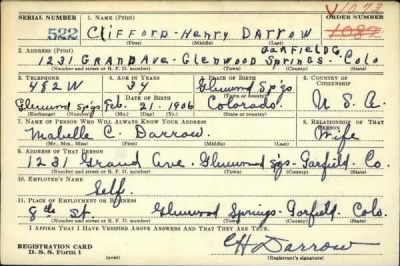 SERIAL NUMBER 1. NAME (Print) ORDER NUMBER
V1073
522 Clifford - Henry Darrow 1082
(First) (Middle) (Last)
2. ADDRESS (Print) GARFIELD
1231 GRAND AVE. GLENWOOD SPRINGS. COLO
(Number and street or R. F. D. number) (Town) (County) (State)
3. TELEPHONE 4. AGE IN YEARS 5. PLACE OF BIRTH 6. COUNTRY OF CITIZENSHIP
482W 34 Glenwood Spgs
DATE OF BIRTH (Town or county)
Glenwood Spgs Feb. 21. 1906 Colorado. U. S. A.
(Exchange) (Number) (Mo.) (Day) (Yr.) (State or country)
7. NAME OF PERSON WHO WILL ALWAYS KNOW YOUR ADDRESS 8. RELATIONSHIP OF THAT PERSON
Mabelle C. Darrow. Wife
(Mr., Mrs., Miss) (First) (Middle) (Last)
9. ADDRESS OF THAT PERSON
1231 Grand Ave. Glenwood Spgs. Garfield. Co.
(Number and street or R. F. D. number) (Town) (County) (State)
10. EMPLOYER'S NAME
Self.
11. PLACE OF EMPLOYMENT OR BUSINESS
8th St. Glenwood Springs - Garfield. Colo.
(Number and street or R. F. D. number) (Town) (County) (State)
I AFFIRM THAT I HAVE VERIFIED ABOVE ANSWERS AND THAT THEY ARE TRUE.
REGISTRATION CARD
D. S. S. Form 1 (over) CH Darrow
(Registrant's signature)